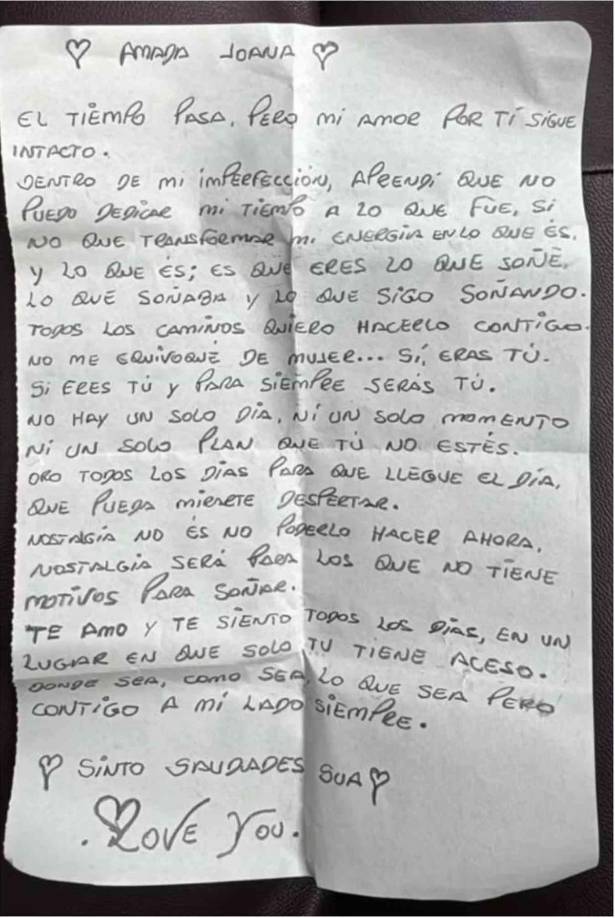 ♡ AMADA JOANA ♡
EL TIEMPO PASA, PERO MI AMOR POR TÍ SIGUE
INTACTO.
DENTRO DE MI IMPERFECCIÓN, APRENDÍ QUE NO
PUEDO DEDICAR MI TIEMPO A LO QUE FUE, SI
NO QUE TRANSFORMAR MI ENERGÍA EN LO QUE ÉS.
Y LO QUE ÉS; ES QUE ERES LO QUE SOÑÉ,
LO QUE SOÑABA Y LO QUE SIGO SOÑANDO.
TODOS LOS CAMIÑOS QUIERO HACERLO CONTIGO.
NO ME EQUIVOQUÉ DE MUJER... SÍ, ERAS TÚ.
SI ERES TÚ Y PARA SIEMPRE SERÁS TÚ.
NO HAY UN SOLO DÍA, NI UN SOLO MOMENTO
NI UN SOLO PLAN QUE TÚ NO ESTÉS.
ORO TODOS LOS DÍAS PARA QUE LLEGUE EL DÍA,
QUE PUEDA MIERETE DESPERTAR.
NOSTALGIA NO ÉS NO PODERLO HACER AHORA,
NOSTALGÍA SERÁ PARA LOS QUE NO TIENE
MOTIVOS PARA SOÑAR.
TE AMO Y TE SIENTO TODOS LOS DÍAS, EN UN
LUGAR EN QUE SOLO TU TIENE ACESO.
DONDE SEA, COMO SEA, LO QUE SEA PERO
CONTIGO A MI LADO SIEMPRE.
♡ SINTO SAUDADES SUA ♡
. LOVE YOU.